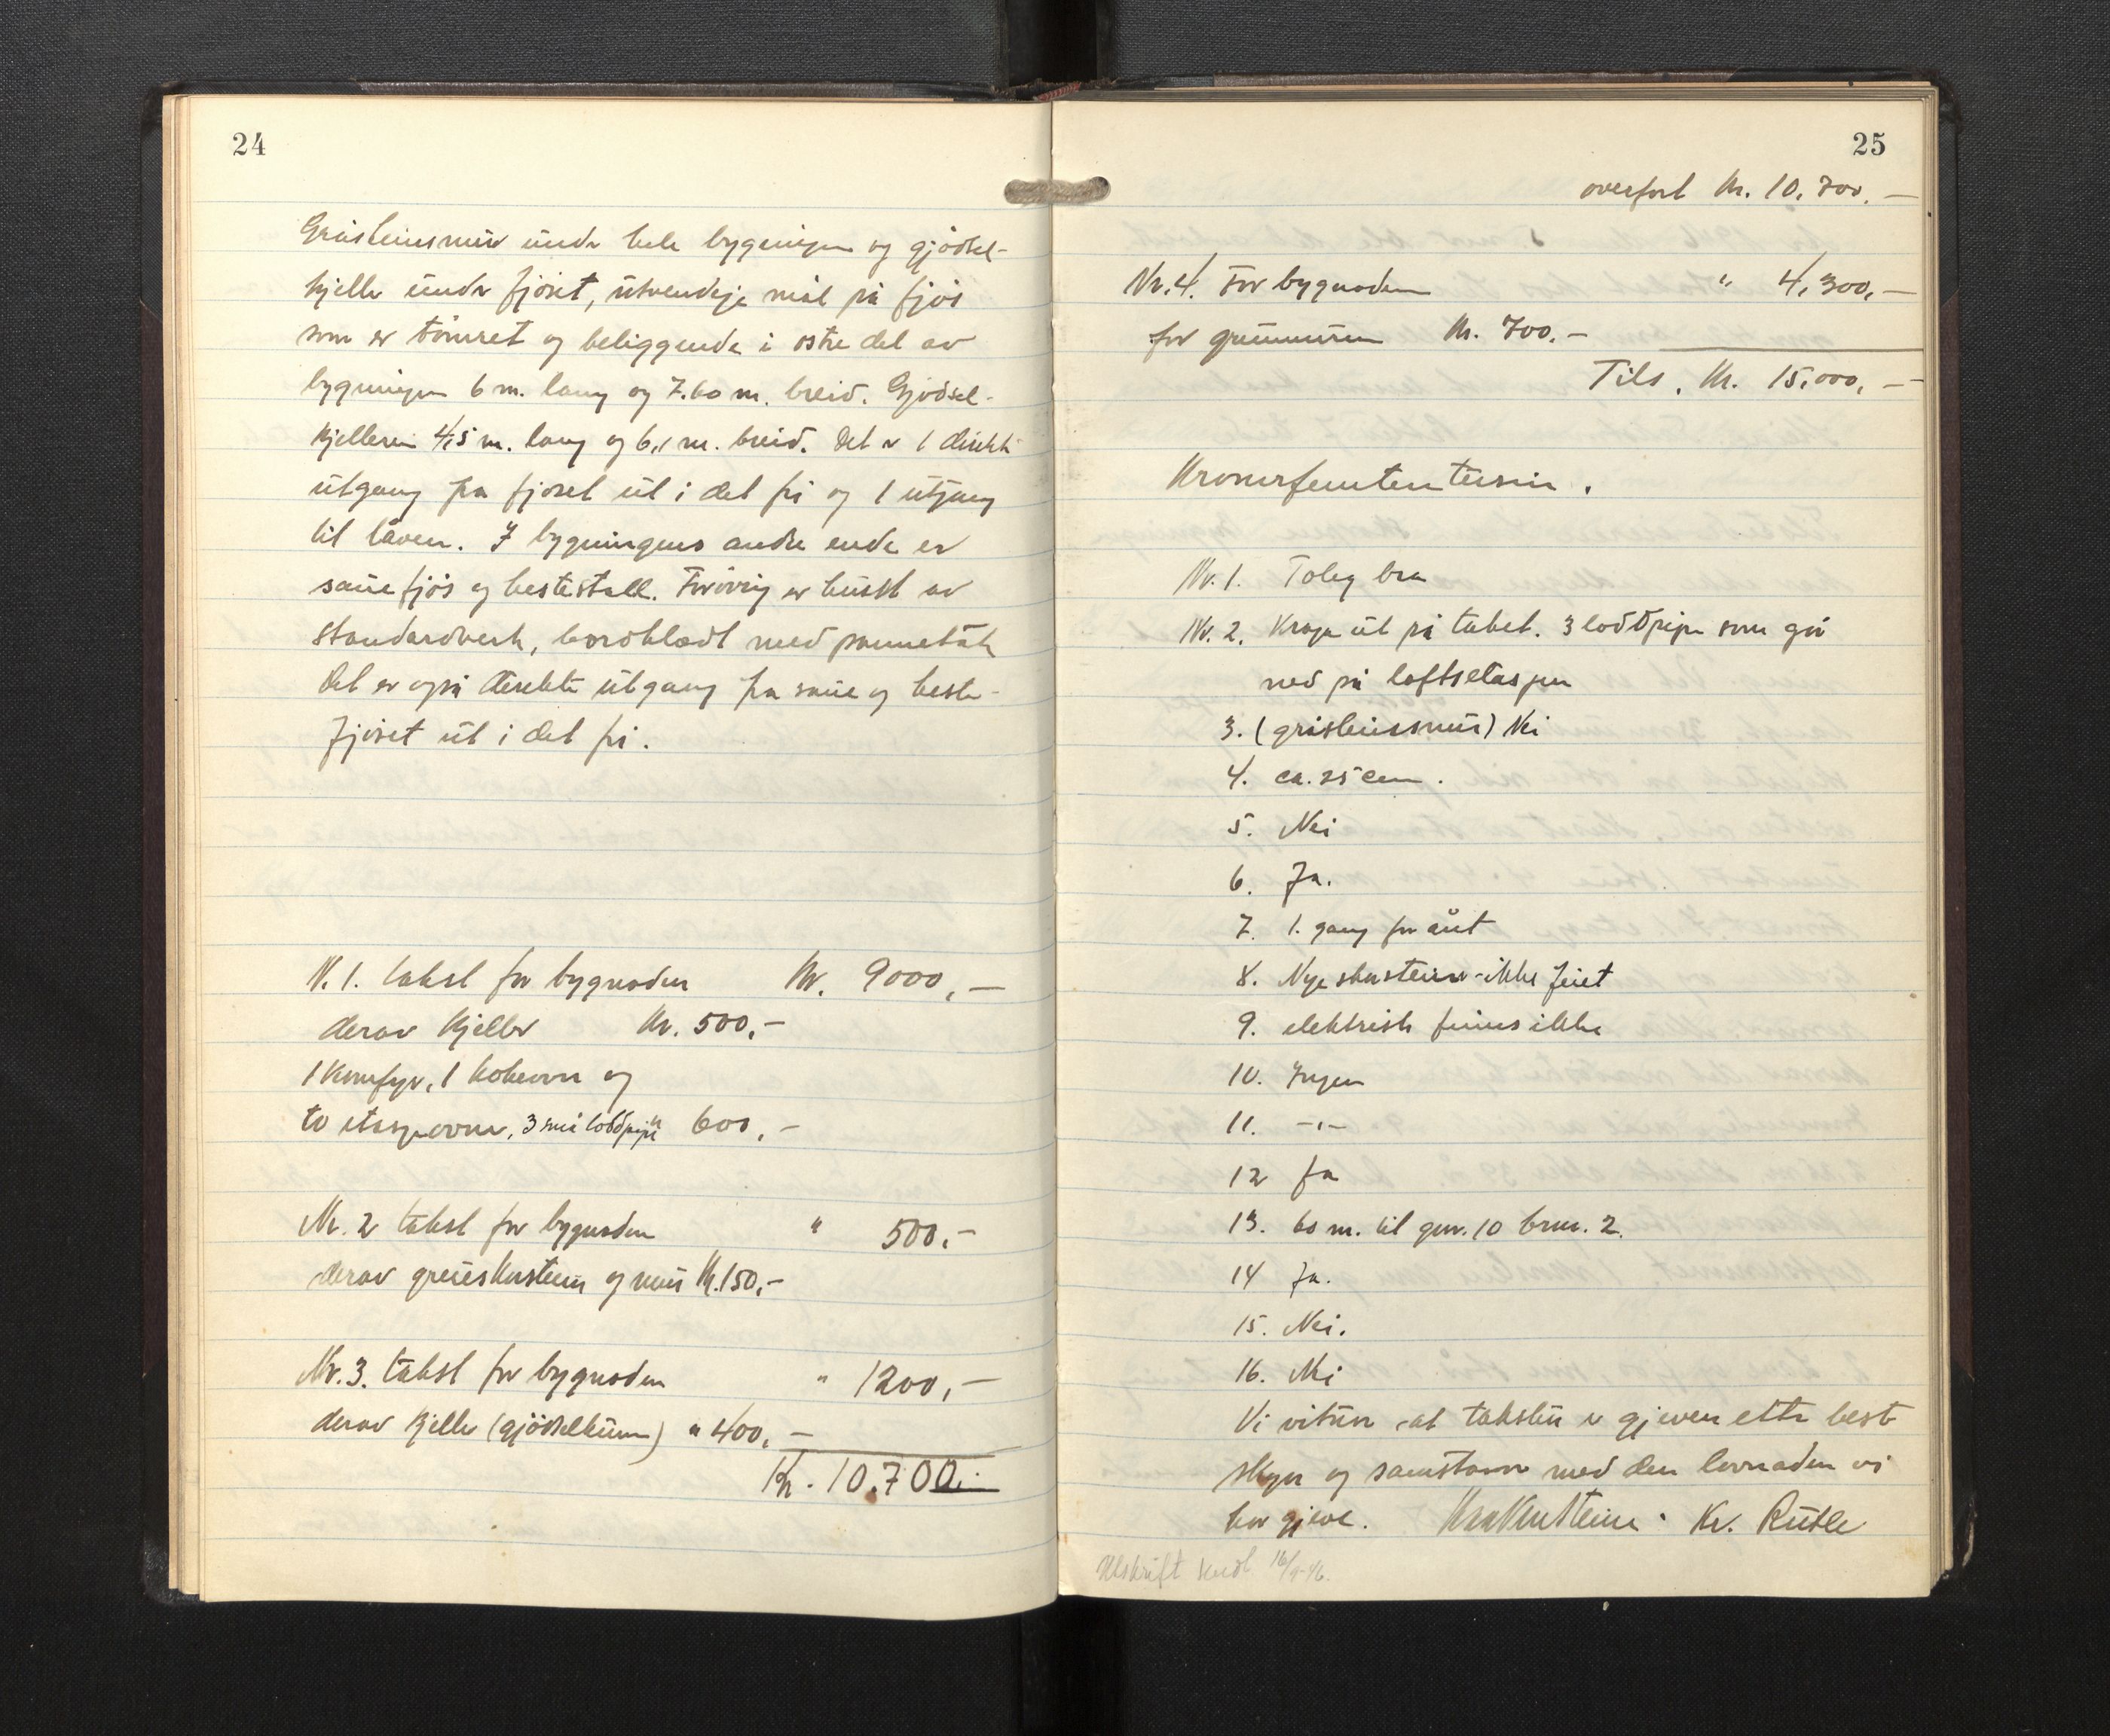 24
Gråsteinsmur under hele bygningen og gjødsel-
kjeller under fjøset, utvendige mål på fjøs
som er tømret og beliggende i østre del av
bygningen 6 m. lang og 7.60 m. breid. Gjødsel-
kjelleren 4,5 m. lang og 6,1 m. breid. Det er 1 direkte
utgang fra fjøset ut i det fri og 1 utgang
til låven. I bygningens andre ende er
sauefjøs og hestestall. Forøvrig er huset av
standardverk, bordklædt med pannetak
Det er også direkte utgang fra saue og heste-
fjøset ut i det fri.
N. 1. takst for bygnaden Kr. 9000,—
derav kjeller Kr. 500,—
1 komfyr, 1 kokeovn og
to etasjeovner, 3 små loddpipe " 600,—
Nr. 2 takst for bygnaden " 500,—
derav grueskorstein og mur Kr. 150,—
Nr. 3. takst for bygnaden " 1200,—
derav kjeller (gjødselkum) " 400,—
Kr. 10.700,—
25
overført Kr. 10.700,—
Nr. 4. For bygnaden " 4,300,—
for grunnmuren Kr. 700,—
Tils. Kr. 15,000,—
Kronerfemtentusin.
Nr. 1. Toleg bra
Nr. 2. Kraga ut på taket. 3 loddpiper som går
ned på loftsetasjen
3. (gråsteinsmur) Nei
4. ca. 25 cm.
5. Nei
6. Ja.
7. 1. gang for året
8. Nye skorsteiner - ikke feiet
9. elektrisk finnes ikke
10. Ingen
11. —"—
12 Ja
13. 60 m. til gnr. 10 brnr. 2.
14 Ja.
15. Nei.
16. Nei
Vi vitner at taksten er gjeven etter beste
skjøn og samstavar med den lovnaden vi
har gjeve. Kr. Rutle
Utskrift sendt 16/9-46.